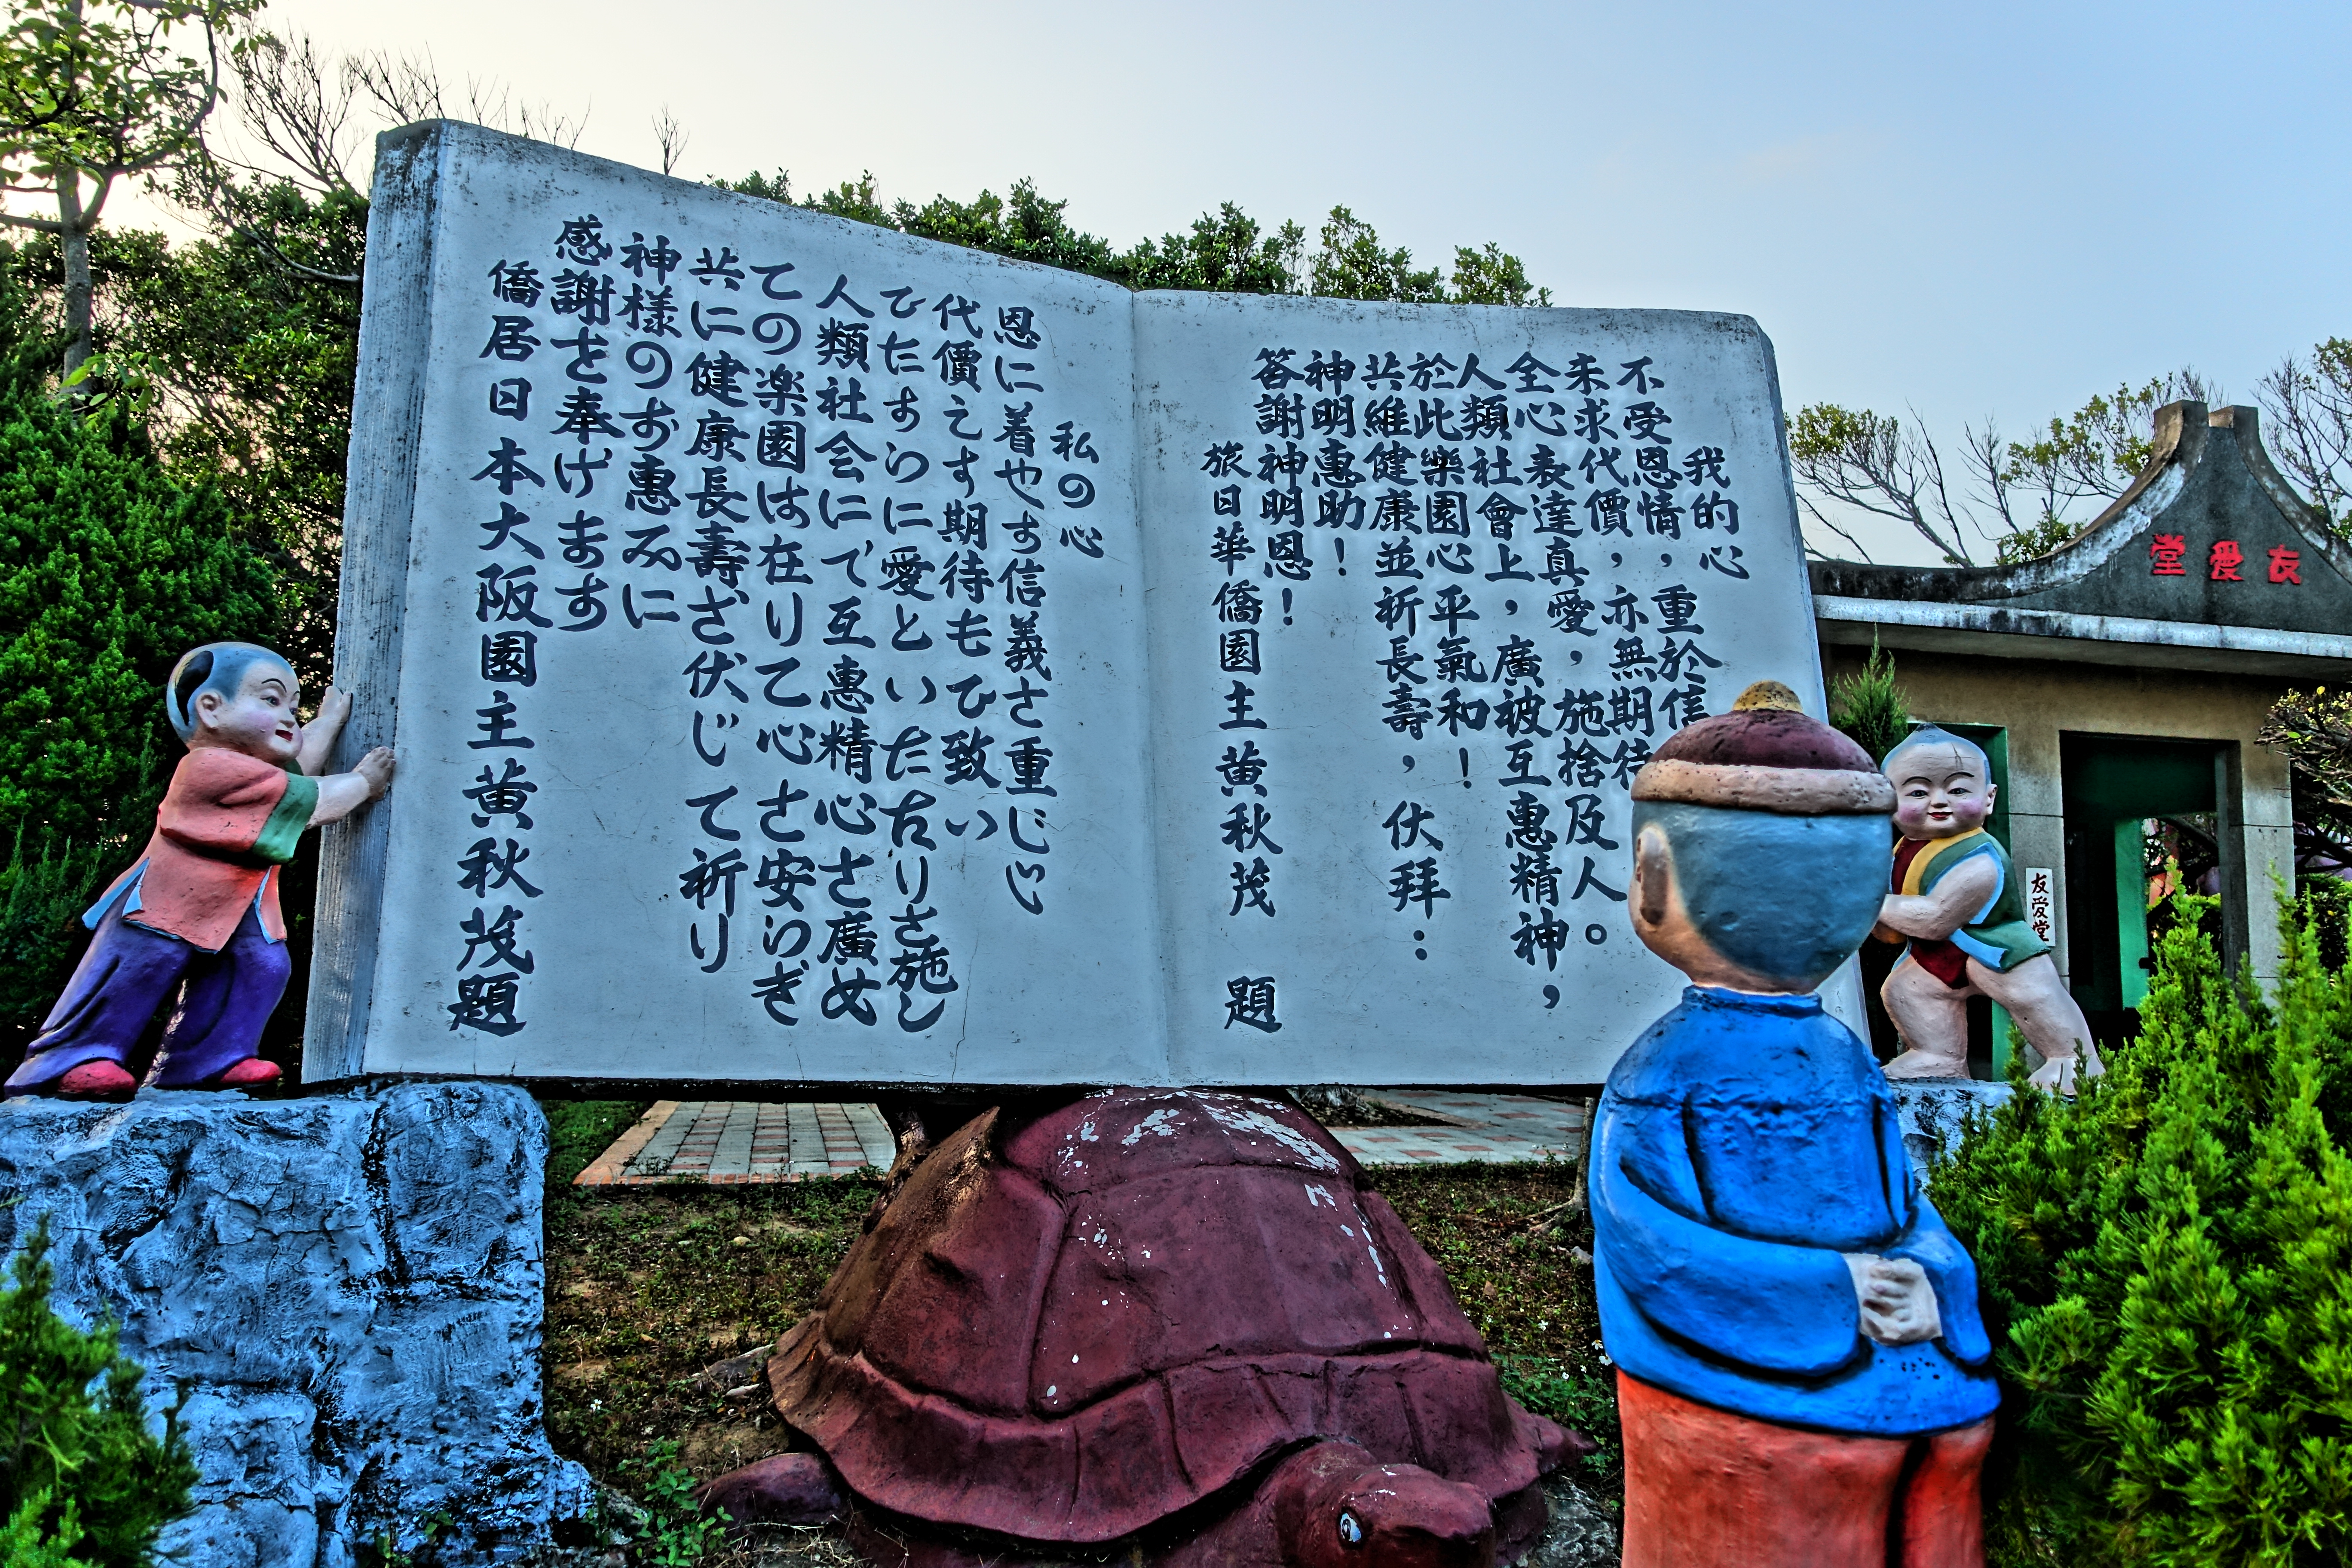 我的心
不受恩情，重於信
未求代價，亦無期待
全心表達真愛，施捨及人。
人類社會上，廣被互惠精神，
於此樂園心平氣和！
共維健康並祈長壽，伏拜：
神明惠助！
答謝神明恩！
旅日華僑園主黃秋茂 題
私の心
恩に着やす信義さ重じじ
代價えす期待もひ致い
ひたすらに愛といたわりさ施し
人類社会にて互惠精心さ廣め
ての楽園は在りて心さ安らぎ
共に健康長壽ざ伏じて祈り
神様のお惠みに
感謝を奉げます
僑居日本大阪園主黃秋茂題
友愛堂
友爱堂